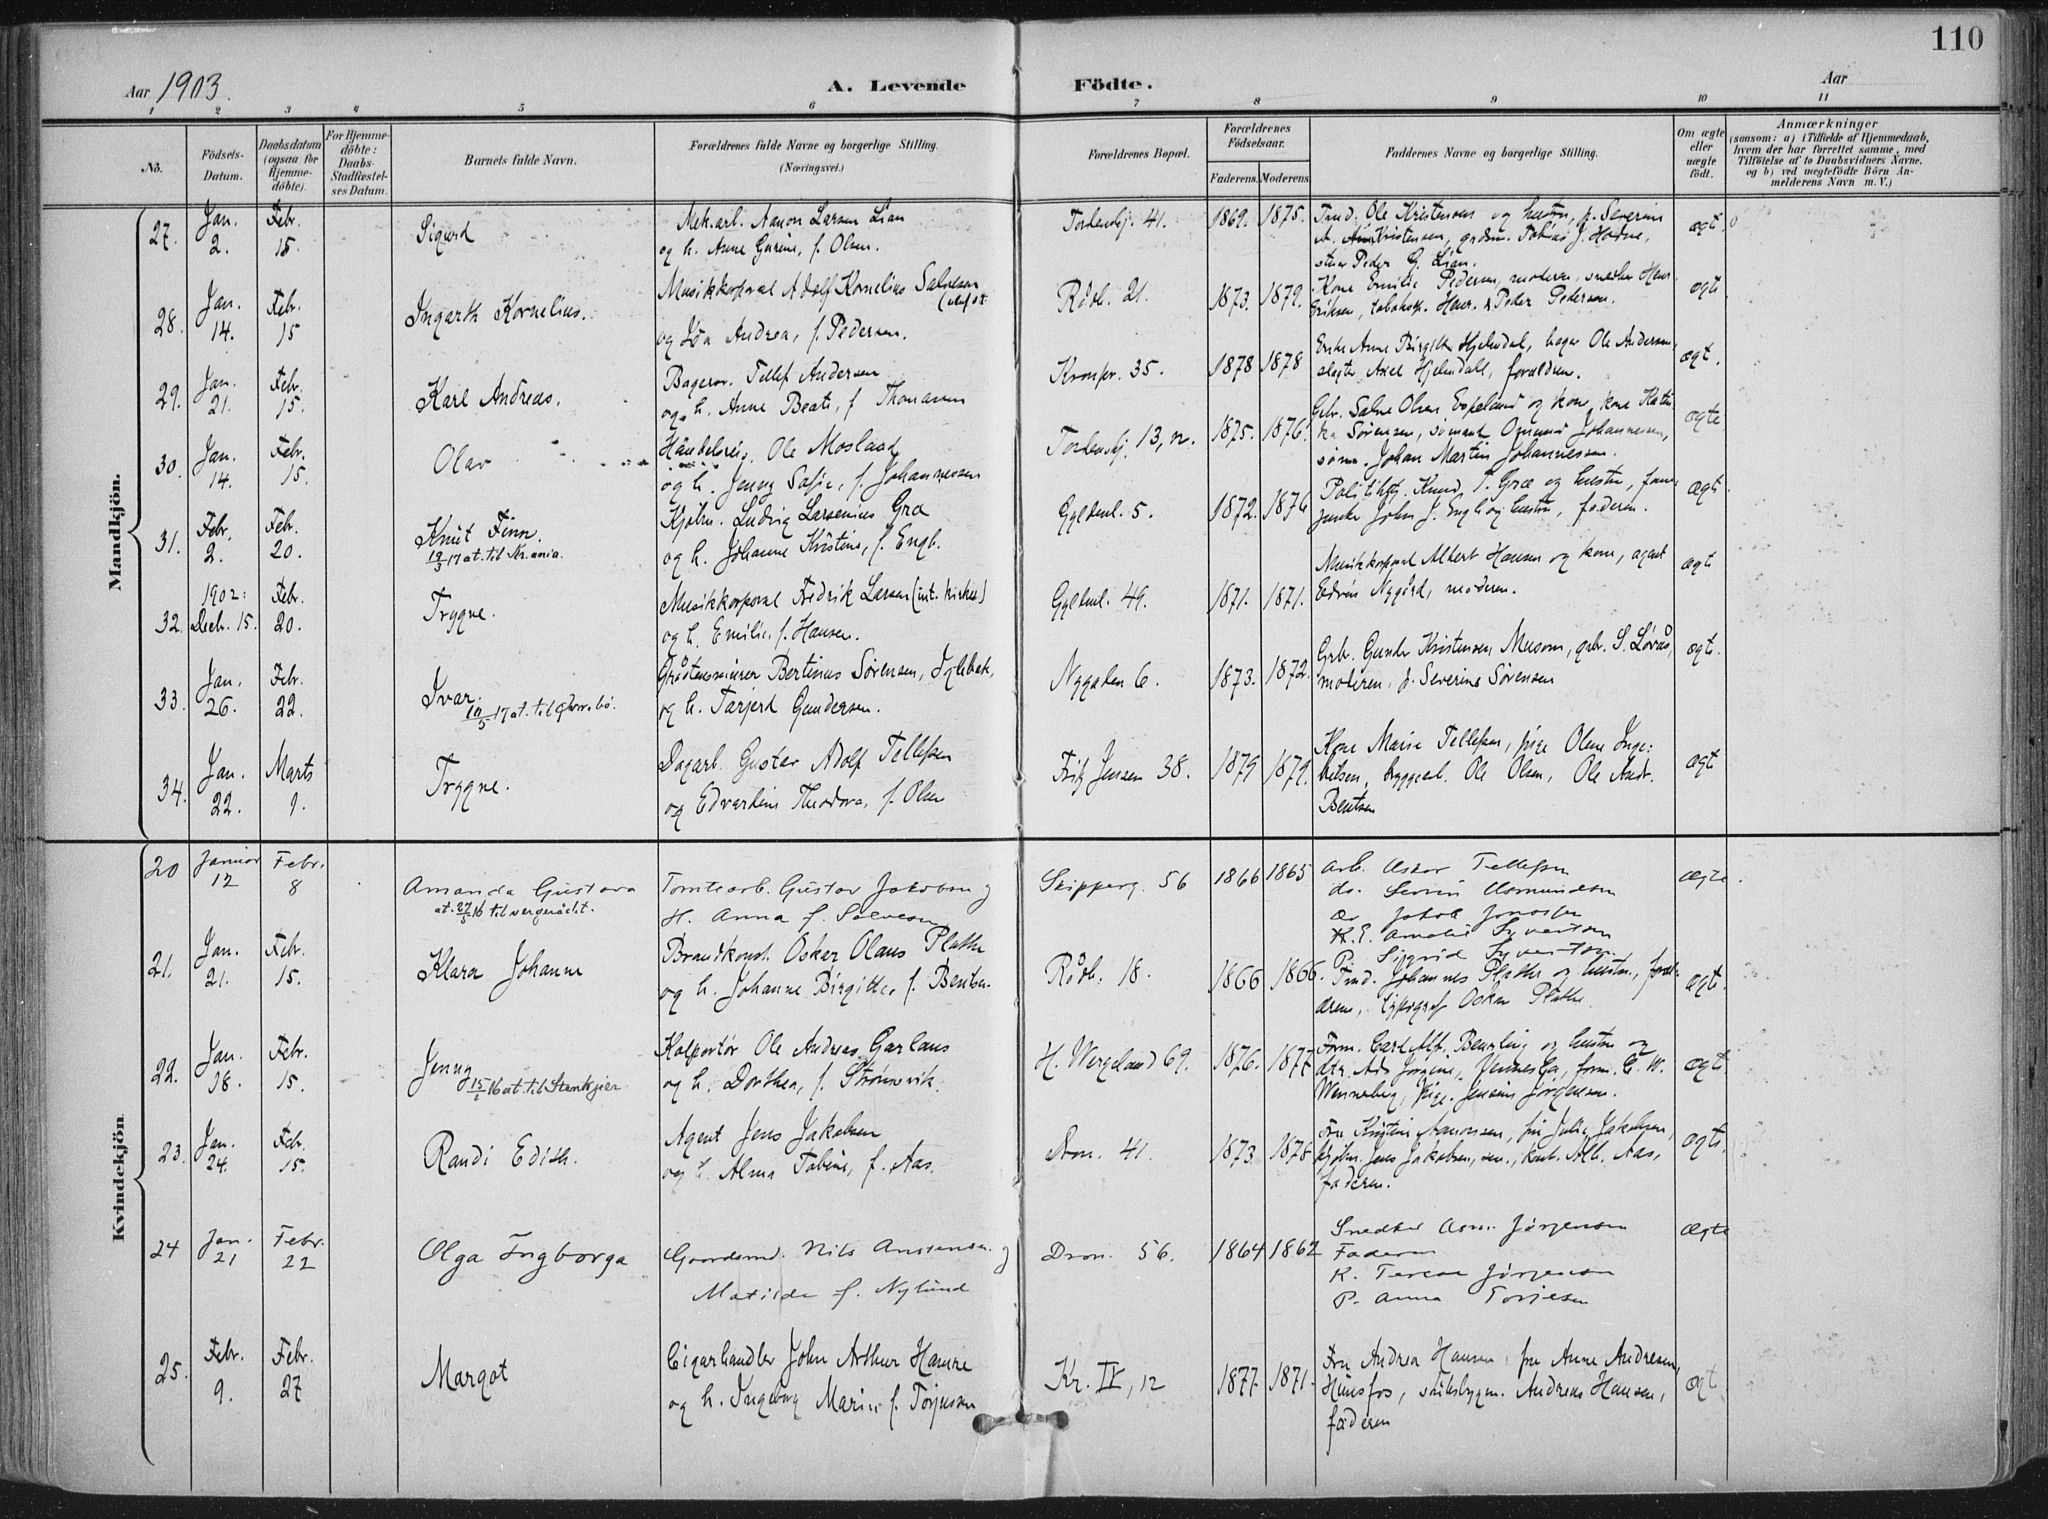 110
Aar 1903.
A. Levende Födte.
Aar
1 2 3 4 5 6 7 8 9 10 11
No.
Födsels-Datum.
Daabsdatum (ogsaa for Hjemme-döbte).
For Hjemme-döbte: Daabs-Stadfæstel-ses Datum.
Barnets fulde Navn.
Forældrenes fulde Navne og borgerlige Stilling.
(Næringsvei.)
Forældrenes Bopæl.
Forældrenes Födselsaar.
Faderens. Moderens.
Faddernes Navne og borgerlige Stilling.
Om ægte eller uægte födt.
Anmærkninger
(saasom: a) i Tilfælde af Hjemmedaab, hvem der har forrettet samme, med Tilföielse af to Daabsvidners Navne. og b) ved uægtefödte Börn An-melderens Navn m. V.)
Mandkjön.
27. Jan. 2. Febr. 15. Sigurd
Mek. arb. Aanon Larsen Lian
og h. Anne Gurine, f. Olsen.
Tordenskj. 41. 1869. 1875.
Ole Kristensen og hustru, p. Severine
Kristensen, grdm. Tobias J. Hodne,
Peder G. Lian.
ægt.
28. Jan. 14. Febr. 15 Ingarth Kornelius.
Musikkorporal Adolf Kornelius Salvesen
og Ida Andrea, f. Pedersen.
Rådh. 21. 1873. 1879.
Kone Emilie Pedersen, moderen, snedker Henr.
Eriksen, Henr. & Peder Pedersen.
ægt.
29. Jan. 21. Febr. 15. Karl Andreas.
Bagersv. Tellef Andersen
og h. Anne Beate, f. Thomassen
Kronpr. 35. 1878 1878
Enke Anne Birgitte Hjelmdal, bager Ole Andersen,
slagter Axel Hjelmdall, forældrene.
ægt.
30. Jan. 14. Febr. 15. Olav
Handelsreis. Ole Moslaad
og h. Jenny Sofie, f. Johannessen
Tordenskj. 13, n. 1875. 1876.
Gbr. Salve Olsen Espeland og kone, kone
Sørensen, sømand Johannessen,
sømm. Johan Martin Johannessen.
ægte
31. Febr. 2. Febr. 20. Knut Finn.
13/3 17 at. til Kr.ania.
Kjøbm. Ludvig Larsenius Gra
og h. Johanne Kristine, f. Engh.
Gyldenl. 5. 1872. 1876
Politibtj. Knud T. Gra og hustru,
John J. Engh og hustru, faderen.
ægt.
32. 1902: Decb. 15. Febr. 20. Trygve.
Musikkorporal Fredrik Larsen (int. kirken)
og h. Emilie, f. Hansen.
Gyldenl. 49. 1871. 1871.
Musikkorporal Albert Hansen og kone, agent
Edvin Nygård, moderen.
ægt.
33. Jan. 26. Febr. 22. Ivar.
10/5 17 at. til
Gråstensminer Bertinus Sørensen, Iglebæk,
og h. Tarjerd Gundersen.
Nygaden 6. 1873. 1872.
Grb. Gunder Kristensen Musom, grbr. S. Løvås,
moderen, p. Severine Sørensen
ægt.
34. Jan. 22. Marts 1. Trygve.
Dagarb. Gustav Adolf Tellefsen
og Edvardine Theodora, f. Olsen
Fritz Jensen 38. 1879 1879.
Kone Marie Tellefsen, pige Olene
Nilsen, bryggearb. Ole Olsen, Ole Andr.
Bentsen
ægt.
Kvindekjön
20 Januar 12 Febr. 8 Amanda Gustava
at. 27/5 16 til vergerådet.
Tomtearb. Gustav Jakobsen og
H. Anna f. Salvesen
Skipperg. 56 1866 1865
Arb. Oskar Tellefsen
do. Asmundsen
do Jakob
K. E. Amalie Syvertsen
P. Sigrid Syvertsen.
Ægte.
21. Jan. 21. Febr. 15. Klara Johanne
Brandkonst. Oskar Olaus Plathe
og h. Johanne Birgitte, f. Bentsen.
Rådh. 18. 1866 1866.
Johannes Plathe og hustru, foræl-
drene, typograf Oskar Plathe.
ægt.
22. Jan. 18. Febr. 15. Jenny
15/1 16 at. til Stenkjær
Kolportør Ole Andreas Garlaus
og h. Dorthea, f. Strømsvik.
H. Wergeland 69. 1876. 1877
Form. Carl Alf. Beurling og hustru og
dtr. Ada Jørgine, Vennesla, form. C. W.
Wenneberg, pige Jensine Jørgensen.
ægt.
23. Jan. 24. Febr. 15. Randi Edith.
Agent Jens Jakobsen
og h. Alma Tobine, f. Aas.
Dron. 41. 1873. 1878.
Fru Kristine Aanonsen, frk Julie Jakobsen,
kjøbm. Jens Jakobsen, sen., Alb. Aas,
faderen.
ægt.
24 Jan. 21 Febr. 22 Olga Ingborga
Gaardsmd. Nils Anstensen og
Matilde f. Nylund
Dron. 56. 1864 1862
Snedker Jørgensen
Faderen
K. Terese Jørgensen
P. Anna Torjesen
Ægte
25. Febr. 9. Febr. 27 Margot
Cigarhandler John Arthur Hamre
og h. Ingeborg Marie, f. Torjussen
Kr. IV, 12 1877. 1871.
Fru Andrea Hansen, fru Anne Andresen,
Hunsfos, Andreas Hansen,
faderen
ægt.